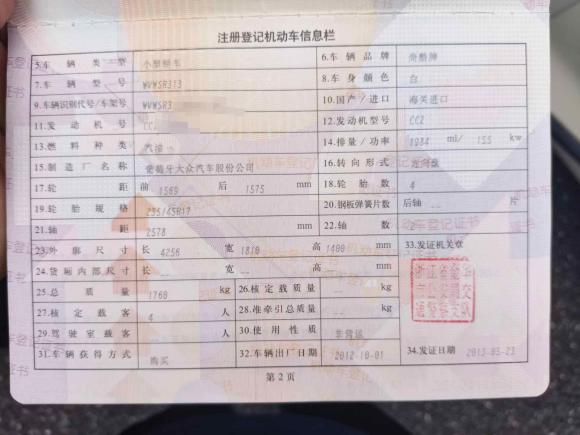 注册登记机动车信息栏
5.车辆类型 小型轿车 6.车辆品牌 尚酷牌
7.车辆型号 WVWSR313 8.车身颜色 白
9.车辆识别代号/车架号 WVWSR3 10.国产/进口 海关进口
11.发动机号 CCZ 12.发动机型号 CCZ
13.燃料种类 汽油 14.排量/功率 1984 ml/ 155 kw
15.制造厂名称 葡萄牙大众汽车股份公司 16.转向形式 方向盘
17.轮距 前 1569 后 1575 mm 18.轮胎数 4
19.轮胎规格 235/45R17 20.钢板弹簧片数 后轴 -- 片
21.轴距 2578 mm 22.轴数 2
23.外廓尺寸 长 4256 宽 1810 高 1400 mm 33.发证机关章
24.货厢内部尺寸 长 -- 宽 -- 高 -- mm
浙江省金华
市公安局交
通警察支队
25.总质量 1760 kg 26.核定载质量 -- kg
27.核定载客 4 人 28.准牵引总质量 -- kg
29.驾驶室载客 -- 人 30.使用性质 非营运
31.车辆获得方式 购买 32.车辆出厂日期 2012-10-01 34.发证日期 2013-05-23
第2页